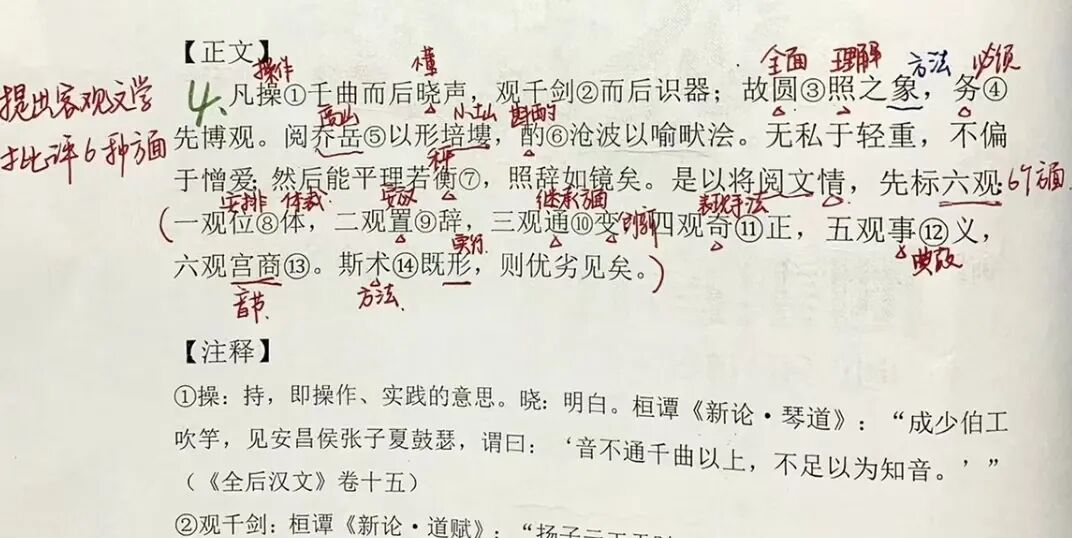 【正文】
操作 懂 全面 理解 方法 必须
提出客观文学
批评6种方面
4.
凡操①千曲而后晓声，观千剑②而后识器；故圆③照之象，务④
高山 小土山 斟酌
先博观。阅乔岳⑤以形培塿，酌⑥沧波以喻畎浍。无私于轻重，不偏
秤
于憎爱；然后能平理若衡⑦，照辞如镜矣。是以将阅文情，先标六观：
6个方面
安排 体裁 安放 继承方面 创新 表现手法
（一观位⑧体，二观置⑨辞，三观通⑩变，四观奇⑪正，五观事⑫义，
实行 典故
六观宫商⑬。斯术⑭既形，则优劣见矣。）
音节 方法
【注释】
①操：持，即操作、实践的意思。晓：明白。桓谭《新论·琴道》：“成少伯工
吹竽，见安昌侯张子夏鼓瑟，谓曰：‘音不通千曲以上，不足以为知音。’”
（《全后汉文》卷十五）
②观千剑：桓谭《新论·道赋》：“扬子云工于